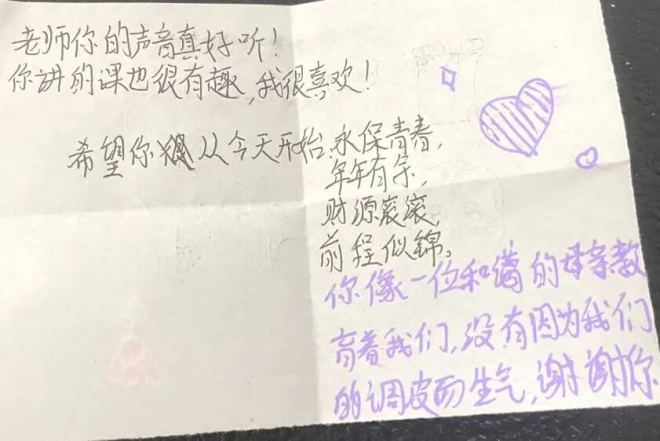 老师你的声音真好听！
你讲的课也很有趣，我很喜欢！
希望你从今天开始，永保青春，
年年有余，
财源滚滚，
前程似锦。
你像一位和蔼的母亲教
育着我们，没有因为我们
的调皮而生气，谢谢你